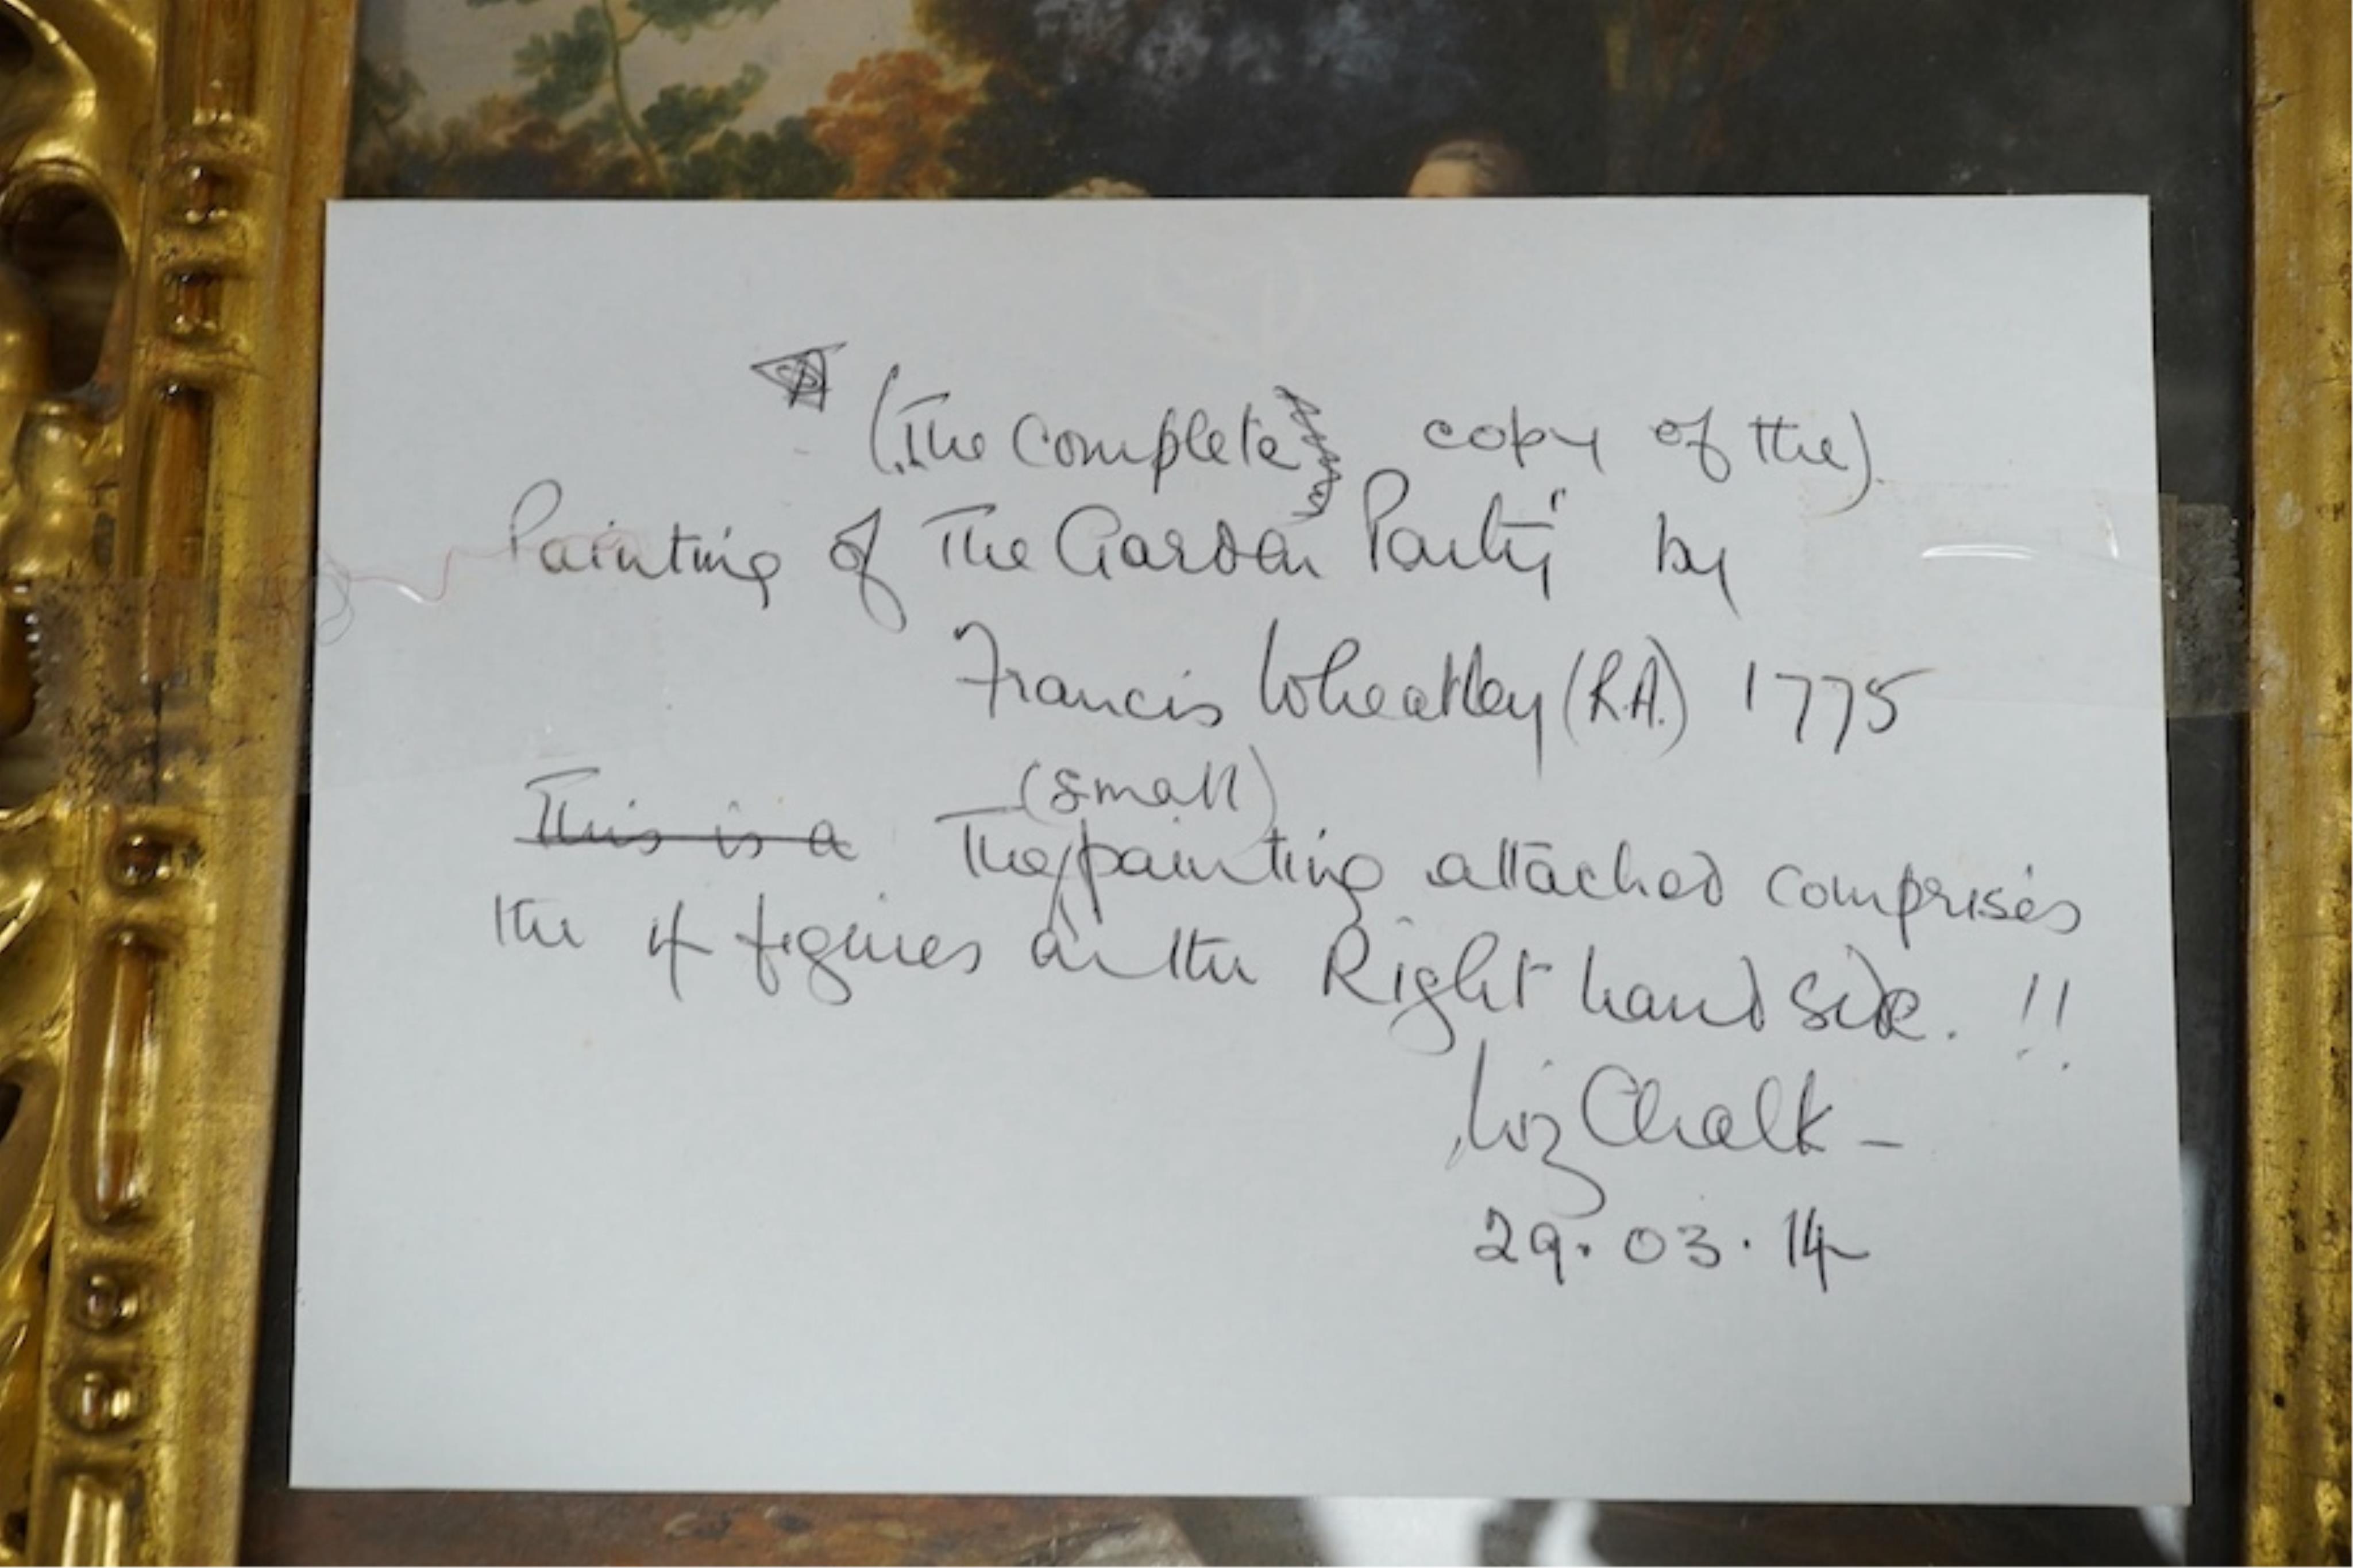 (The Complete copy of the).
Painting of The Garden Party" by
Francis Wheatley (R.A.) 1775
(small)
This is a The painting attached comprises
the 4 figures on the Right hand side. !!
Liz Chalk -
29.03.14